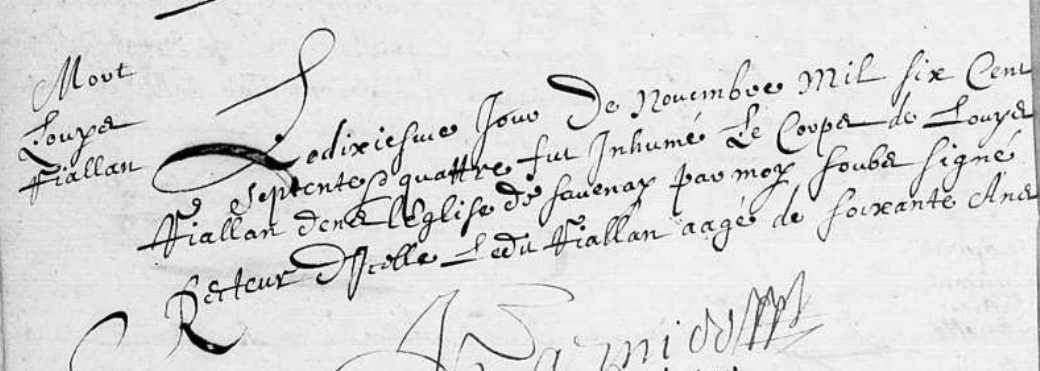 Mort
Louys
ffiallan
Le dixiesme Jour De Novembre Mil six Cent
septente & quattre fut Inhumé Le Corps de Louys
ffiallan dens l'Eglise de savenay par moy soubs signé
Recteur D'Icelle Ledit ffiallan aagé de soixante Ans